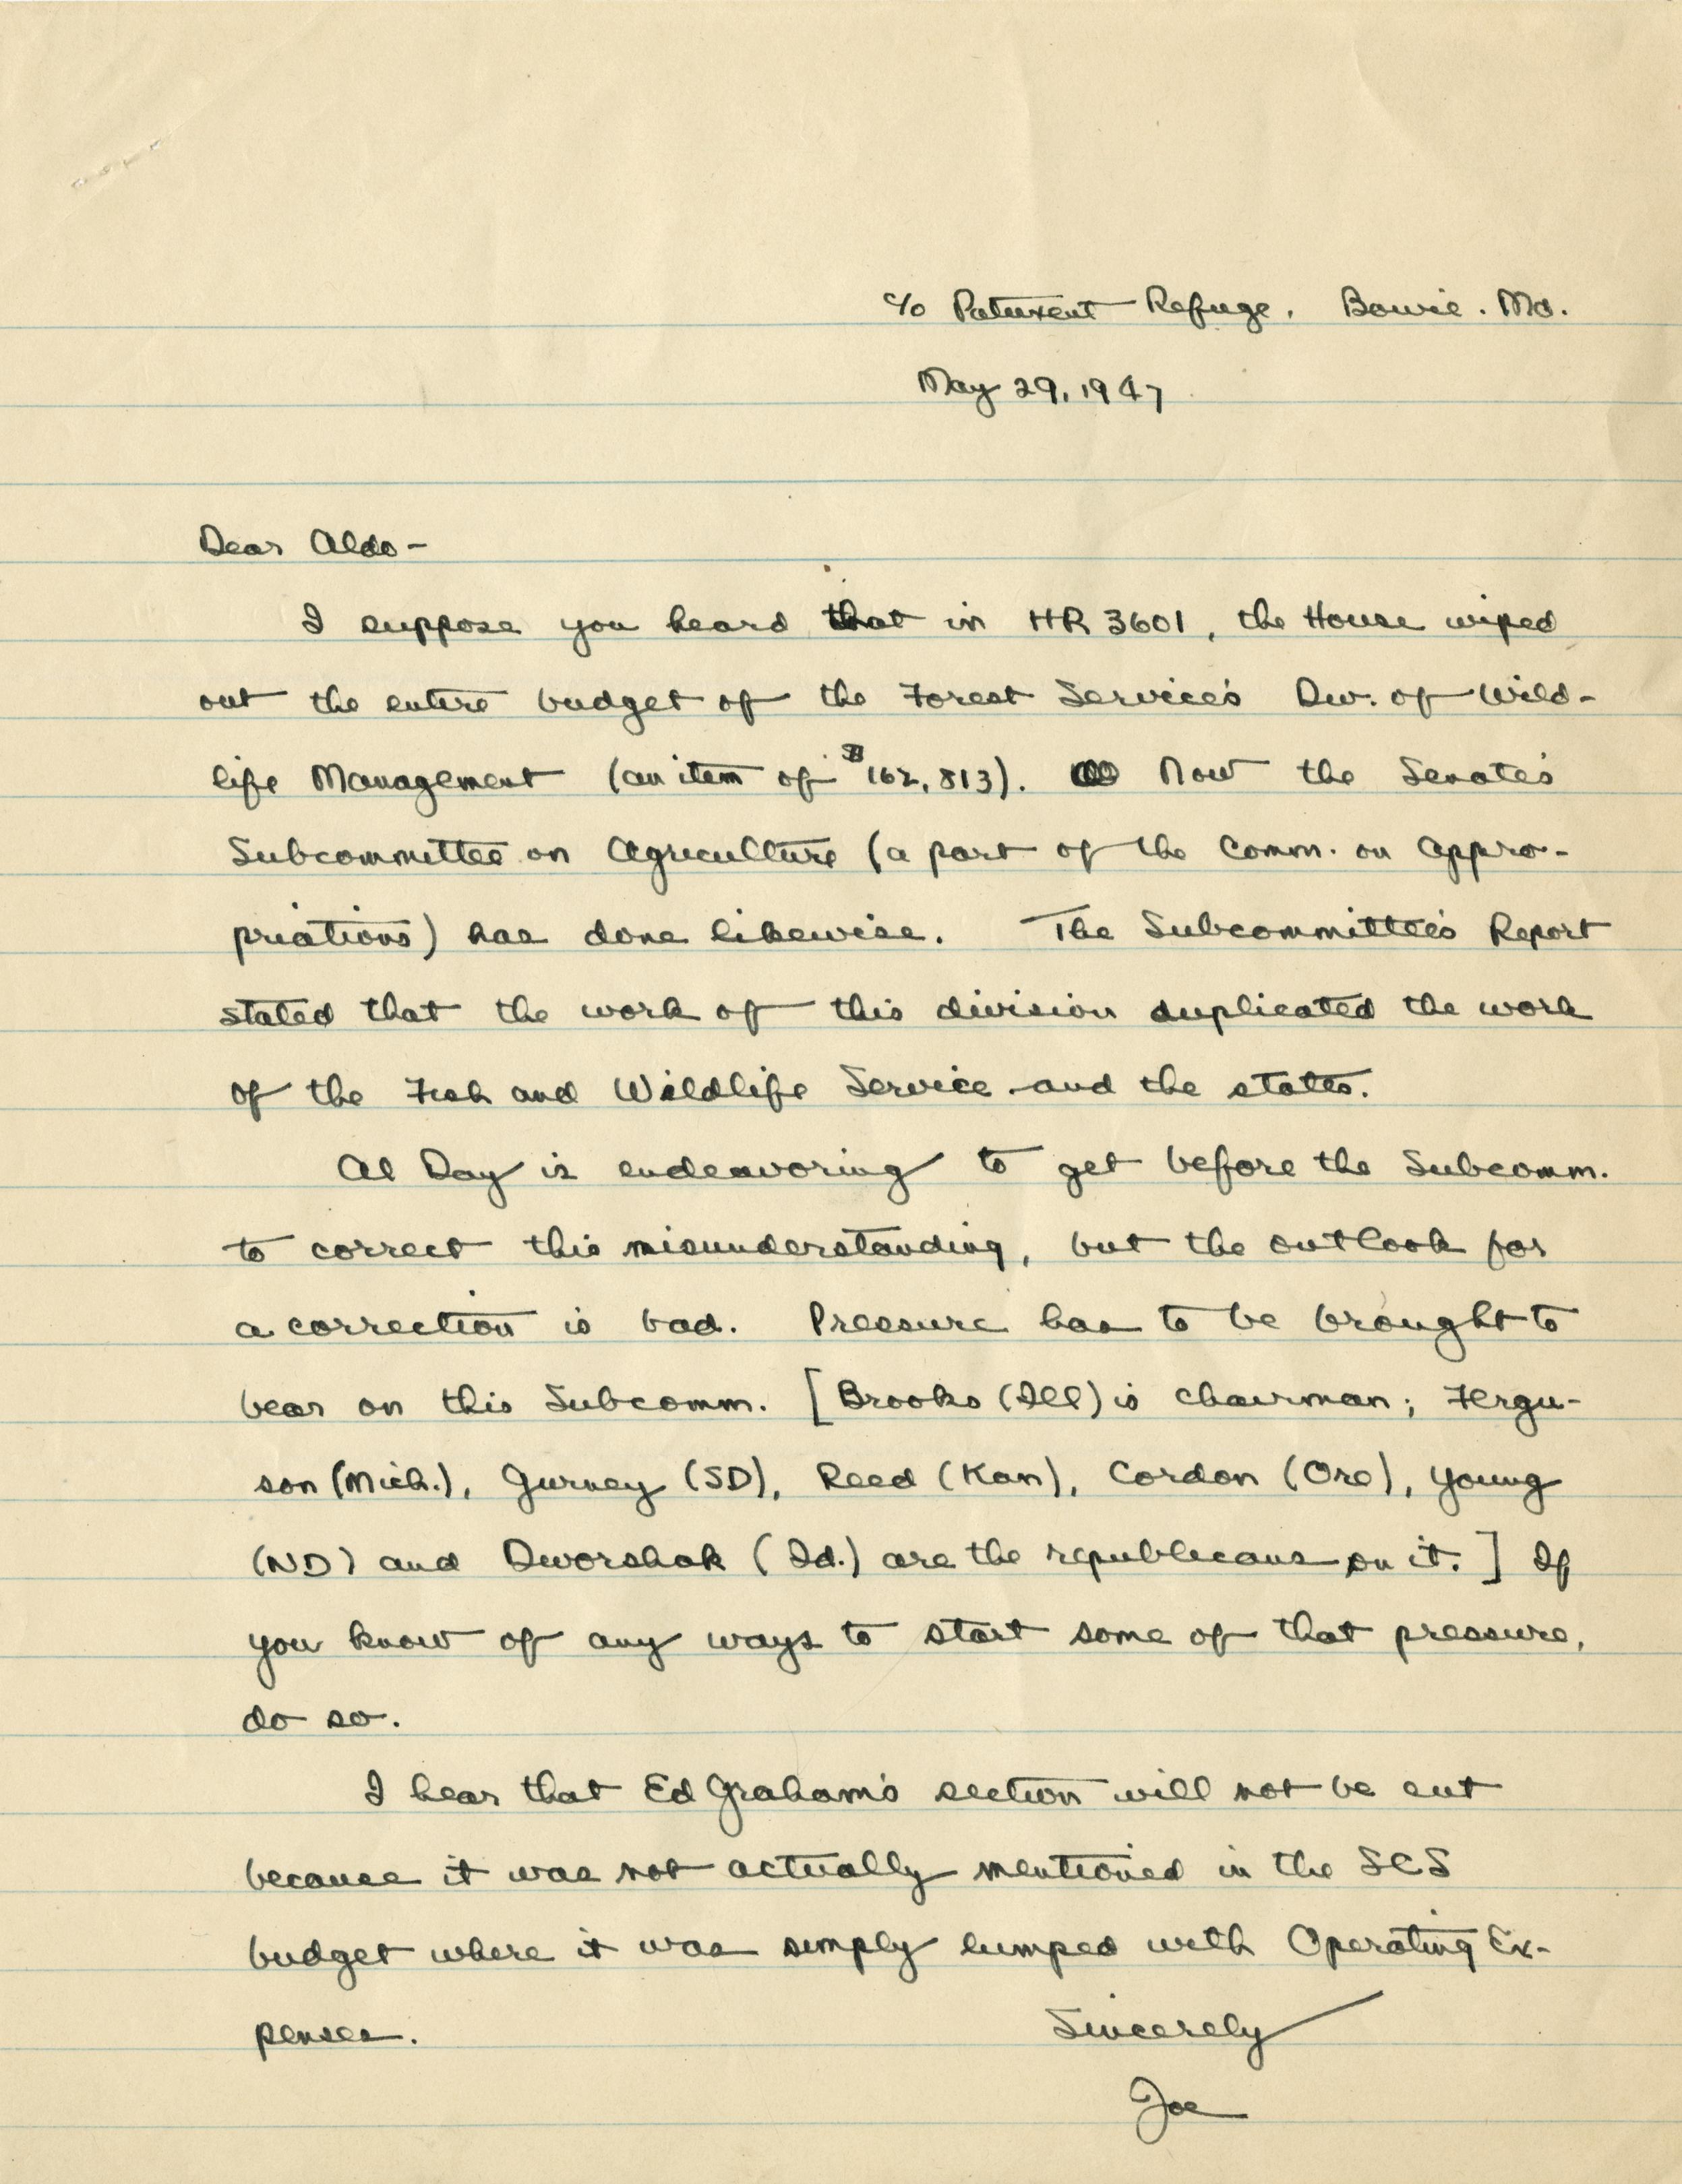 c/o Patuxent Refuge, Bowie. Md.
May 29, 1947
Dear Aldo -
I suppose you heard that in HR 3601, the House wiped
out the entire budget of the Forest Service's Div. of Wild-
life Management (an item of $162,813). Now the Senate's
Subcommittee on Agriculture (a part of the Comm. on Appro-
priations) has done likewise. The Subcommittee's Report
stated that the work of this division duplicated the work
of the Fish and Wildlife Service and the states.
Al Day is endeavoring to get before the Subcomm.
to correct this misunderstanding, but the outlook for
a correction is bad. Pressure has to be brought to
bear on this Subcomm. [Brooks (Ill) is chairman; Fergu-
son (Mich.), Gurney (SD), Reed (Kan), Cordon (Ore), Young
(ND) and Dworshak (Id.) are the republicans on it.] If
you know of any ways to start some of that pressure,
do so.
I hear that Ed Graham's section will not be cut
because it was not actually mentioned in the SCS
budget where it was simply lumped with Operating Ex-
penses.
Sincerely
Joe